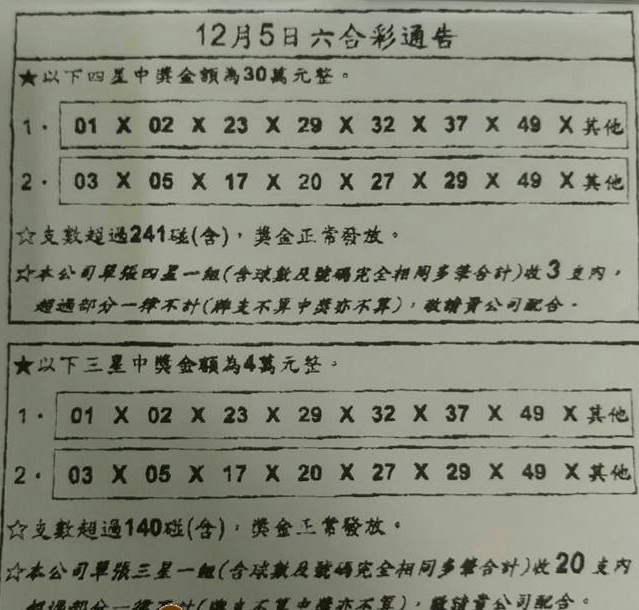 12月5日六合彩通告
★以下四星中獎金額為30萬元整。
1. 01 X 02 X 23 X 29 X 32 X 37 X 49 X 其他
2. 03 X 05 X 17 X 20 X 27 X 29 X 49 X 其他
☆支數超過241碰(含),獎金正常發放。
☆本公司單張四星一組(含球數及號碼完全相同多筆合計)收3支內,
超過部分一律不計(牌支不算中獎亦不算),敬請貴公司配合。
★以下三星中獎金額為4萬元整。
1. 01 X 02 X 23 X 29 X 32 X 37 X 49 X 其他
2. 03 X 05 X 17 X 20 X 27 X 29 X 49 X 其他
☆支數超過140碰(含),獎金正常發放。
☆本公司單張三星一組(含球數及號碼完全相同多筆合計)收20支內
超過部分一律不計(牌支不算中獎亦不算),敬請貴公司配合。